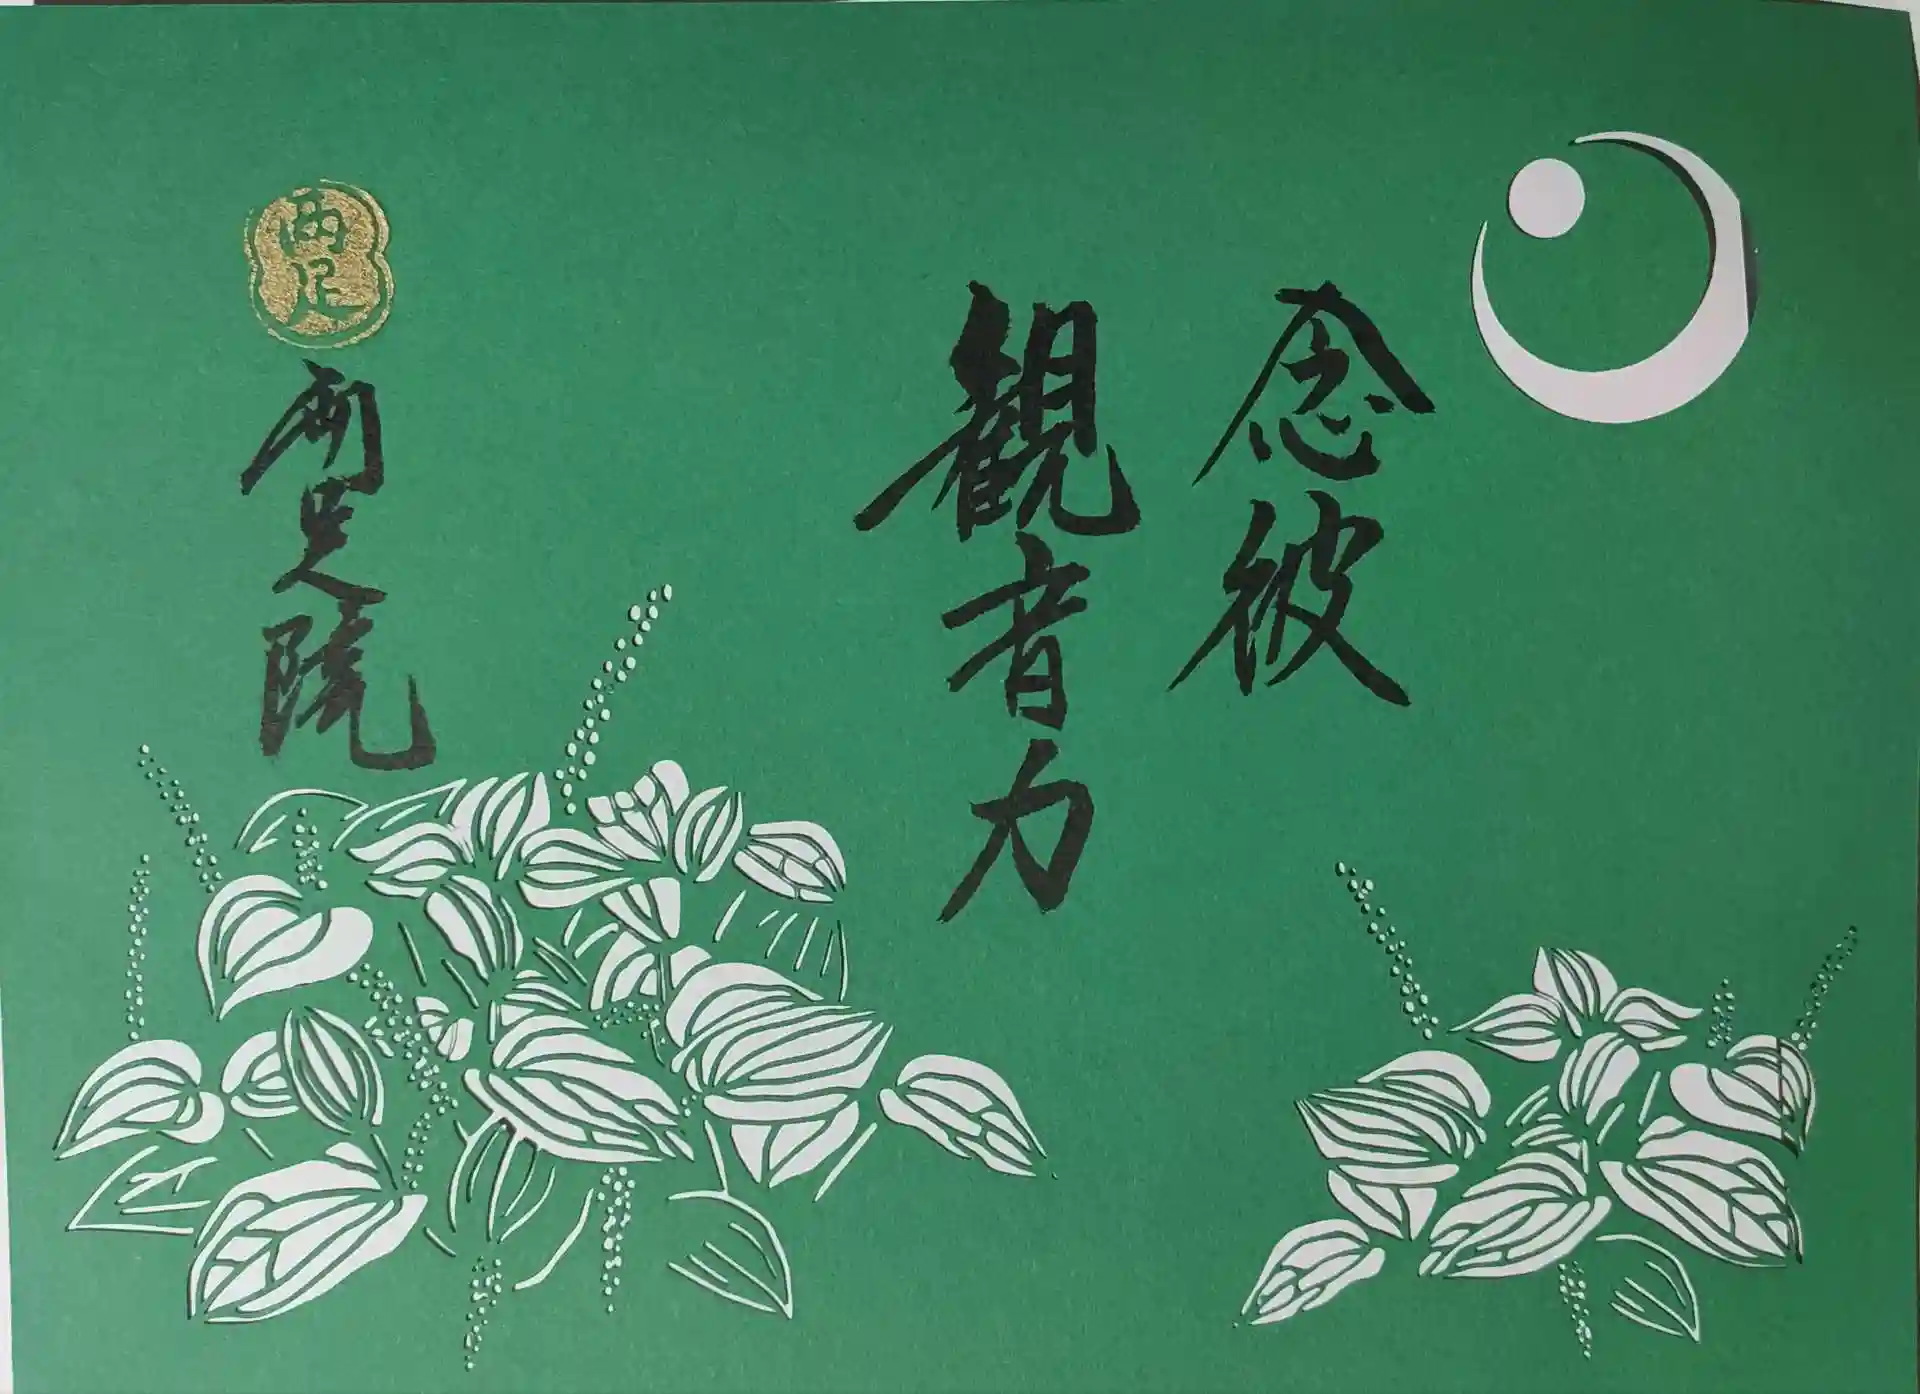 念彼
観音力
両足
両足院